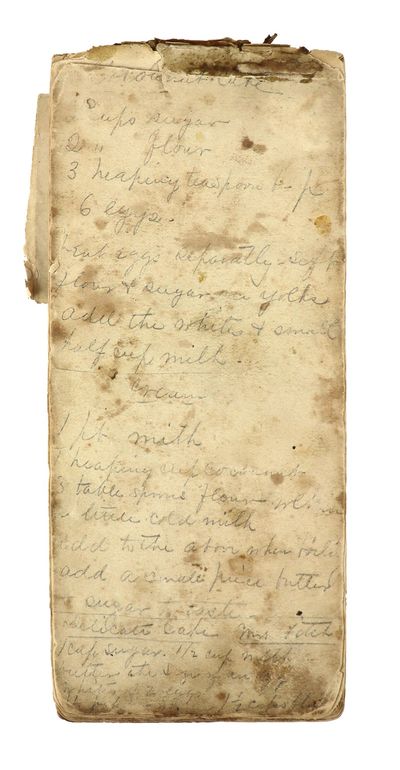 Cocoanut Cake
2 cups sugar
2 " flour
3 heaping teaspoon b. p
6 eggs.
beat eggs separately sift
flour & sugar in yolks
add the whites & small
half cup milk.
Cream
1 pt milk
1 heaping cup cocoanut
3 table spoons flour
a little cold milk
add to the above when boili
add a small piece butter
& sugar to taste
Delicate Cake Mrs
1 cup sugar. 1/2 cup milk
butter the
whites